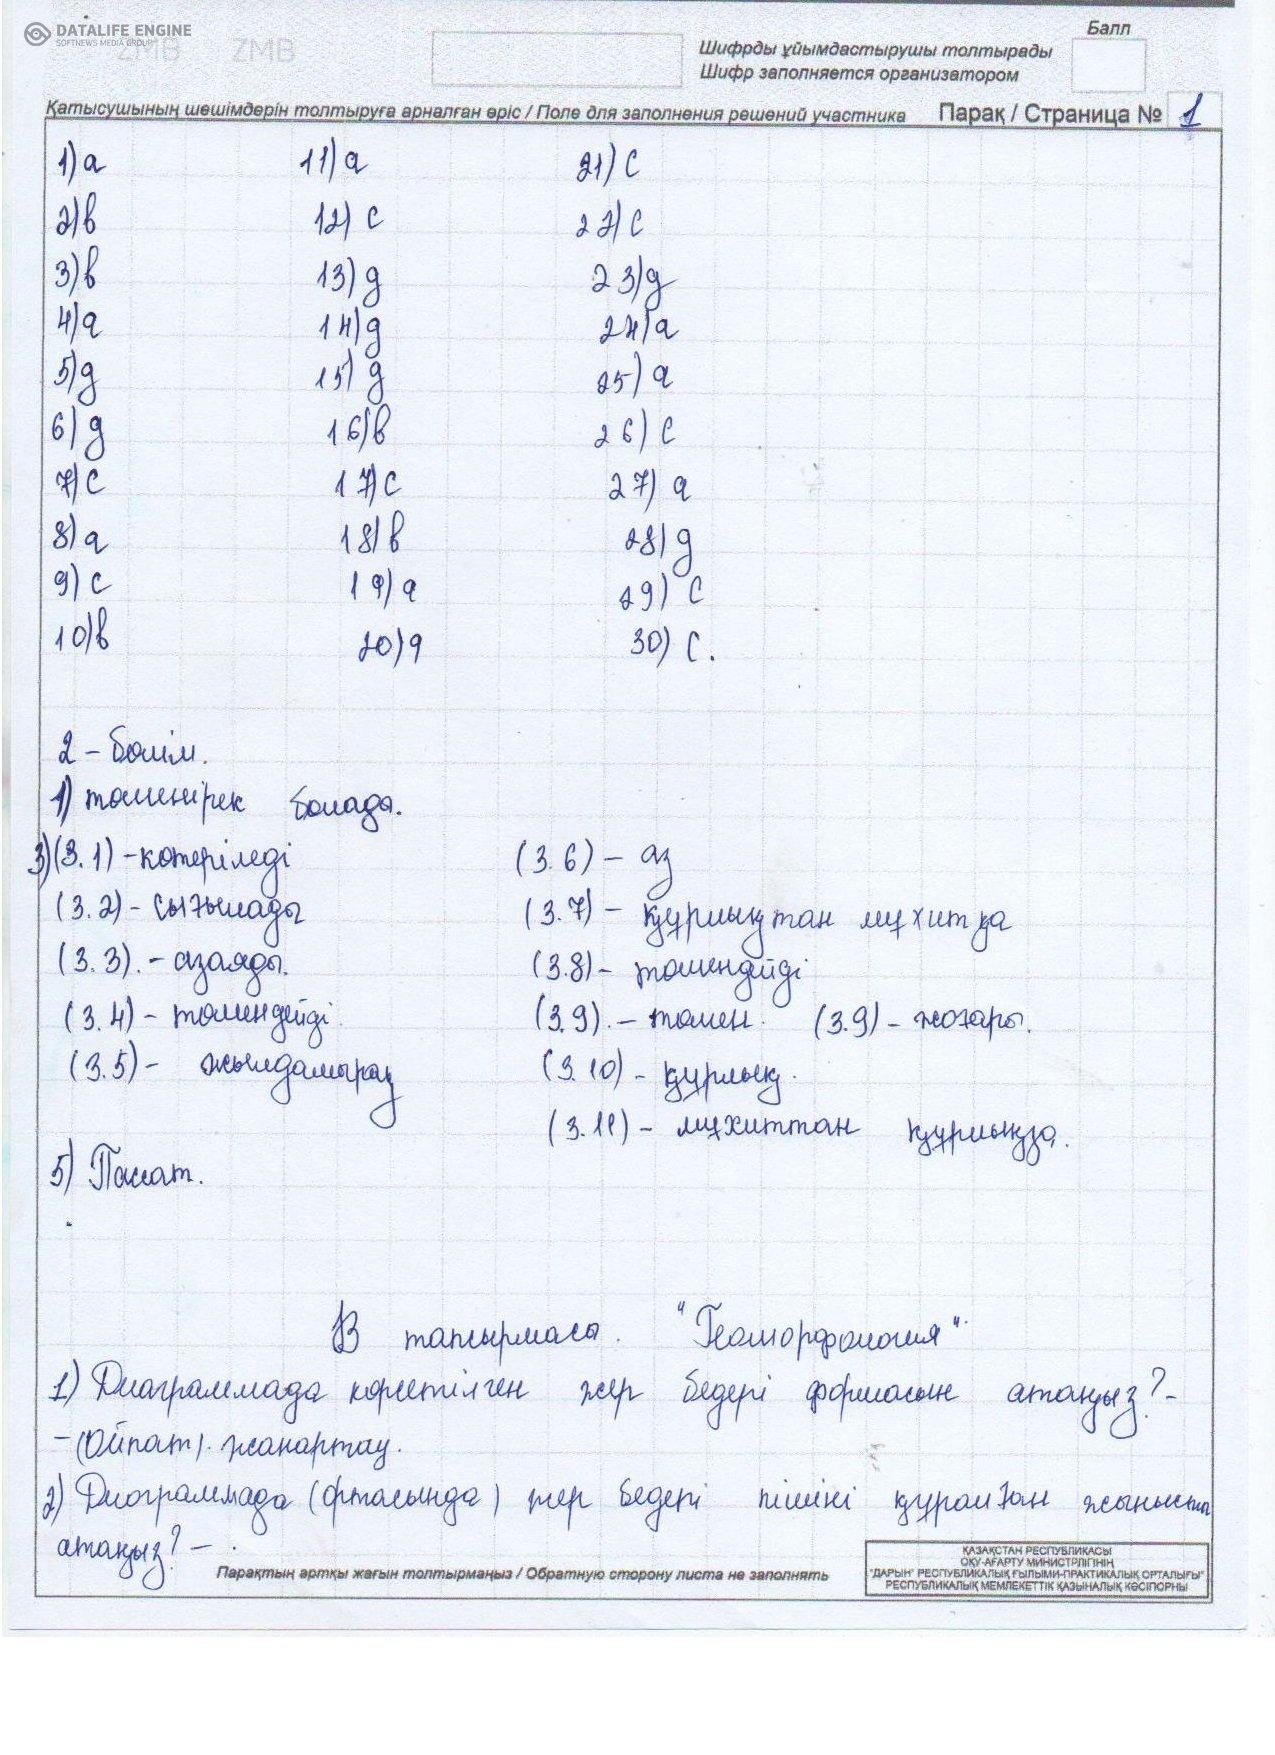 DATALIFE ENGINE
SOFTNEWS MEDIA GROUP
ZMB ZMB
Балл
Шифрды ұйымдастырушы толтырады
Шифр заполняется организатором
Қатысушының шешімдерін толтыруға арналған өріс / Поле для заполнения решений участника Парақ / Страница № 1
1) а 11) а 21) с
2) в 12) с 22) с
3) в 13) д 23) д
4) а 14) д 24) а
5) д 15) д 25) а
6) д 16) в 26) с
7) с 17) с 27) а
8) а 18) в 28) д
9) с 19) а 29) с
10) в 20) а 30) с.
2 - бөлім.
1) төменірек болады.
3) (3.1) - көтеріледі (3.6) - аз
(3.2) - сығылады (3.7) - құрлықтан мұхитқа
(3.3). - азаяды. (3.8) - төмендейді
(3.4) - төмендейді. (3.9). - төмен. (3.9) - жоғары.
(3.5) - жылдамырақ (3.10) - құрлық.
(3.11) - мұхиттан құрлыққа.
5) Пассат.
В тапсырмасы. "Геоморфология".
1) Диаграммада көрсетілген жер бедері формасын атаңыз? -
- (Ойпат). жанартау.
2) Диограммада (ортасында) жер бедері пішіні құралған жынысты
атаңыз? - .
Парақтың артқы жағын толтырмаңыз / Обратную сторону листа не заполнять
ҚАЗАҚСТАН РЕСПУБЛИКАСЫ
ОҚУ-АҒАРТУ МИНИСТРЛІГІНІҢ
"ДАРЫН" РЕСПУБЛИКАЛЫҚ ҒЫЛЫМИ-ПРАКТИКАЛЫҚ ОРТАЛЫҒЫ"
РЕСПУБЛИКАЛЫҚ МЕМЛЕКЕТТІК ҚАЗЫНАЛЫҚ КӘСІПОРНЫ